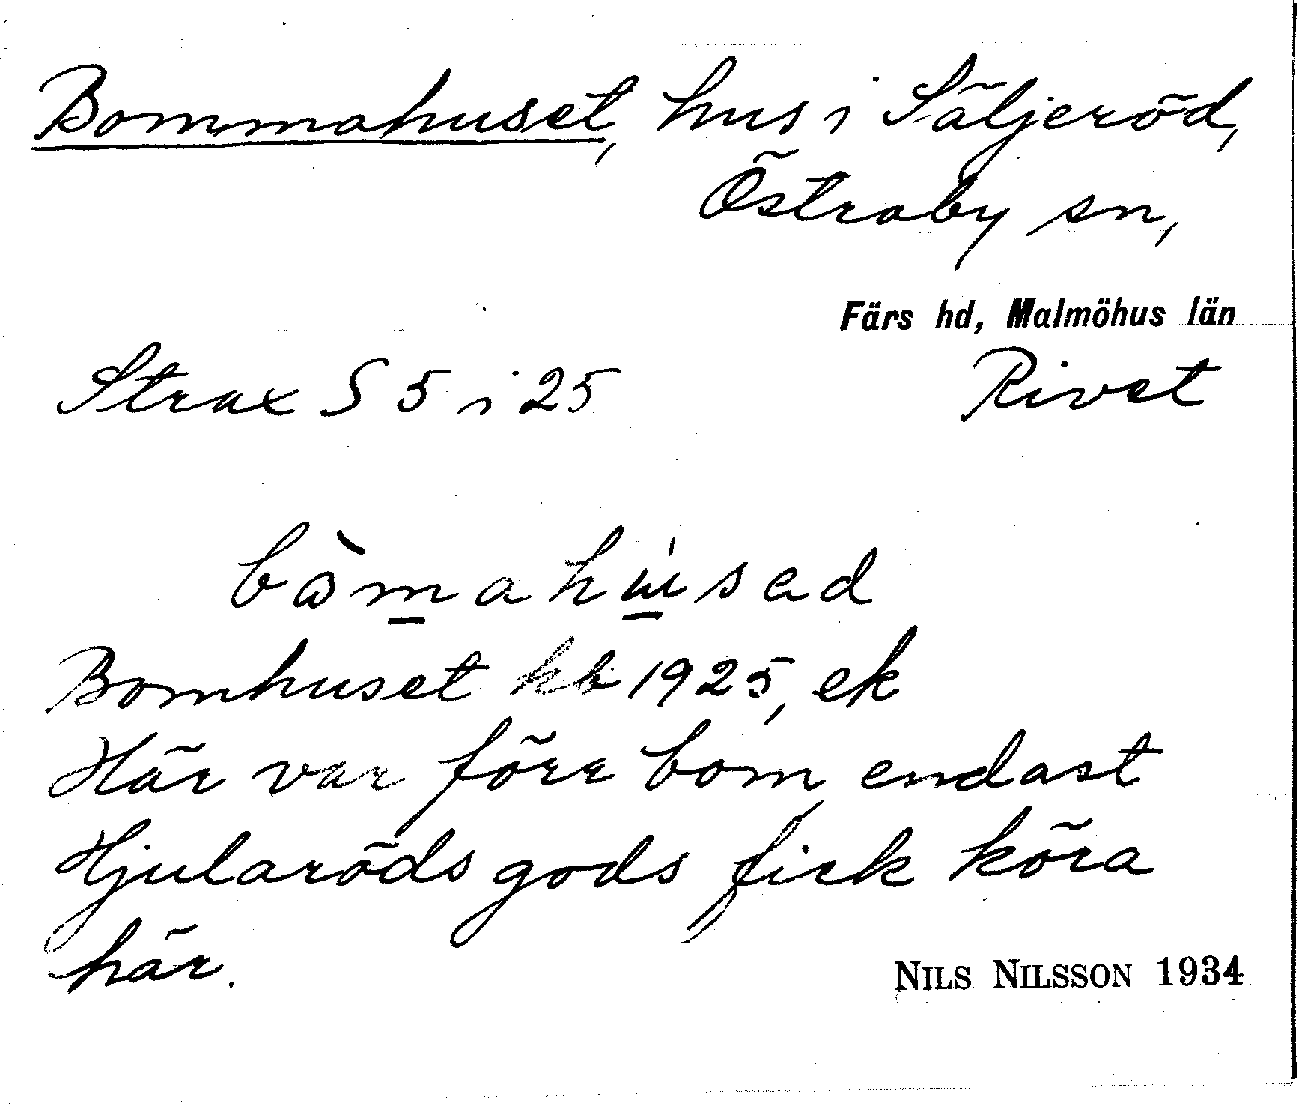 Bommahuset, hus i Säljeröd,
Östraby sn,
Färs hd, Malmöhus län
Strax S 5 i 25 Rivet
Bomhuset kb 1925, ek
Här var förr bom, endast
Hjularöds gods fick köra
här.
NILS NILSSON 1934